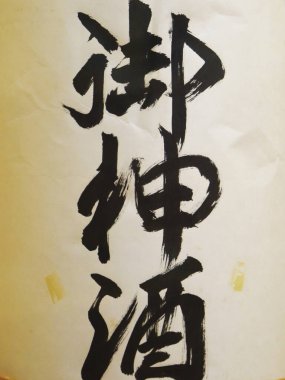 御神酒